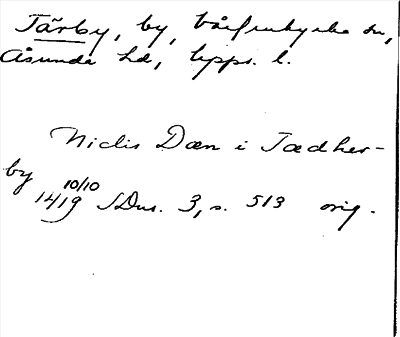 Tärby, by, Vårfrukyrka sn,
Åsunda hd, Upps. l.
Niclis Dæn i Tædher-
by
10/10
1419 SDns. 3, s. 513 orig.